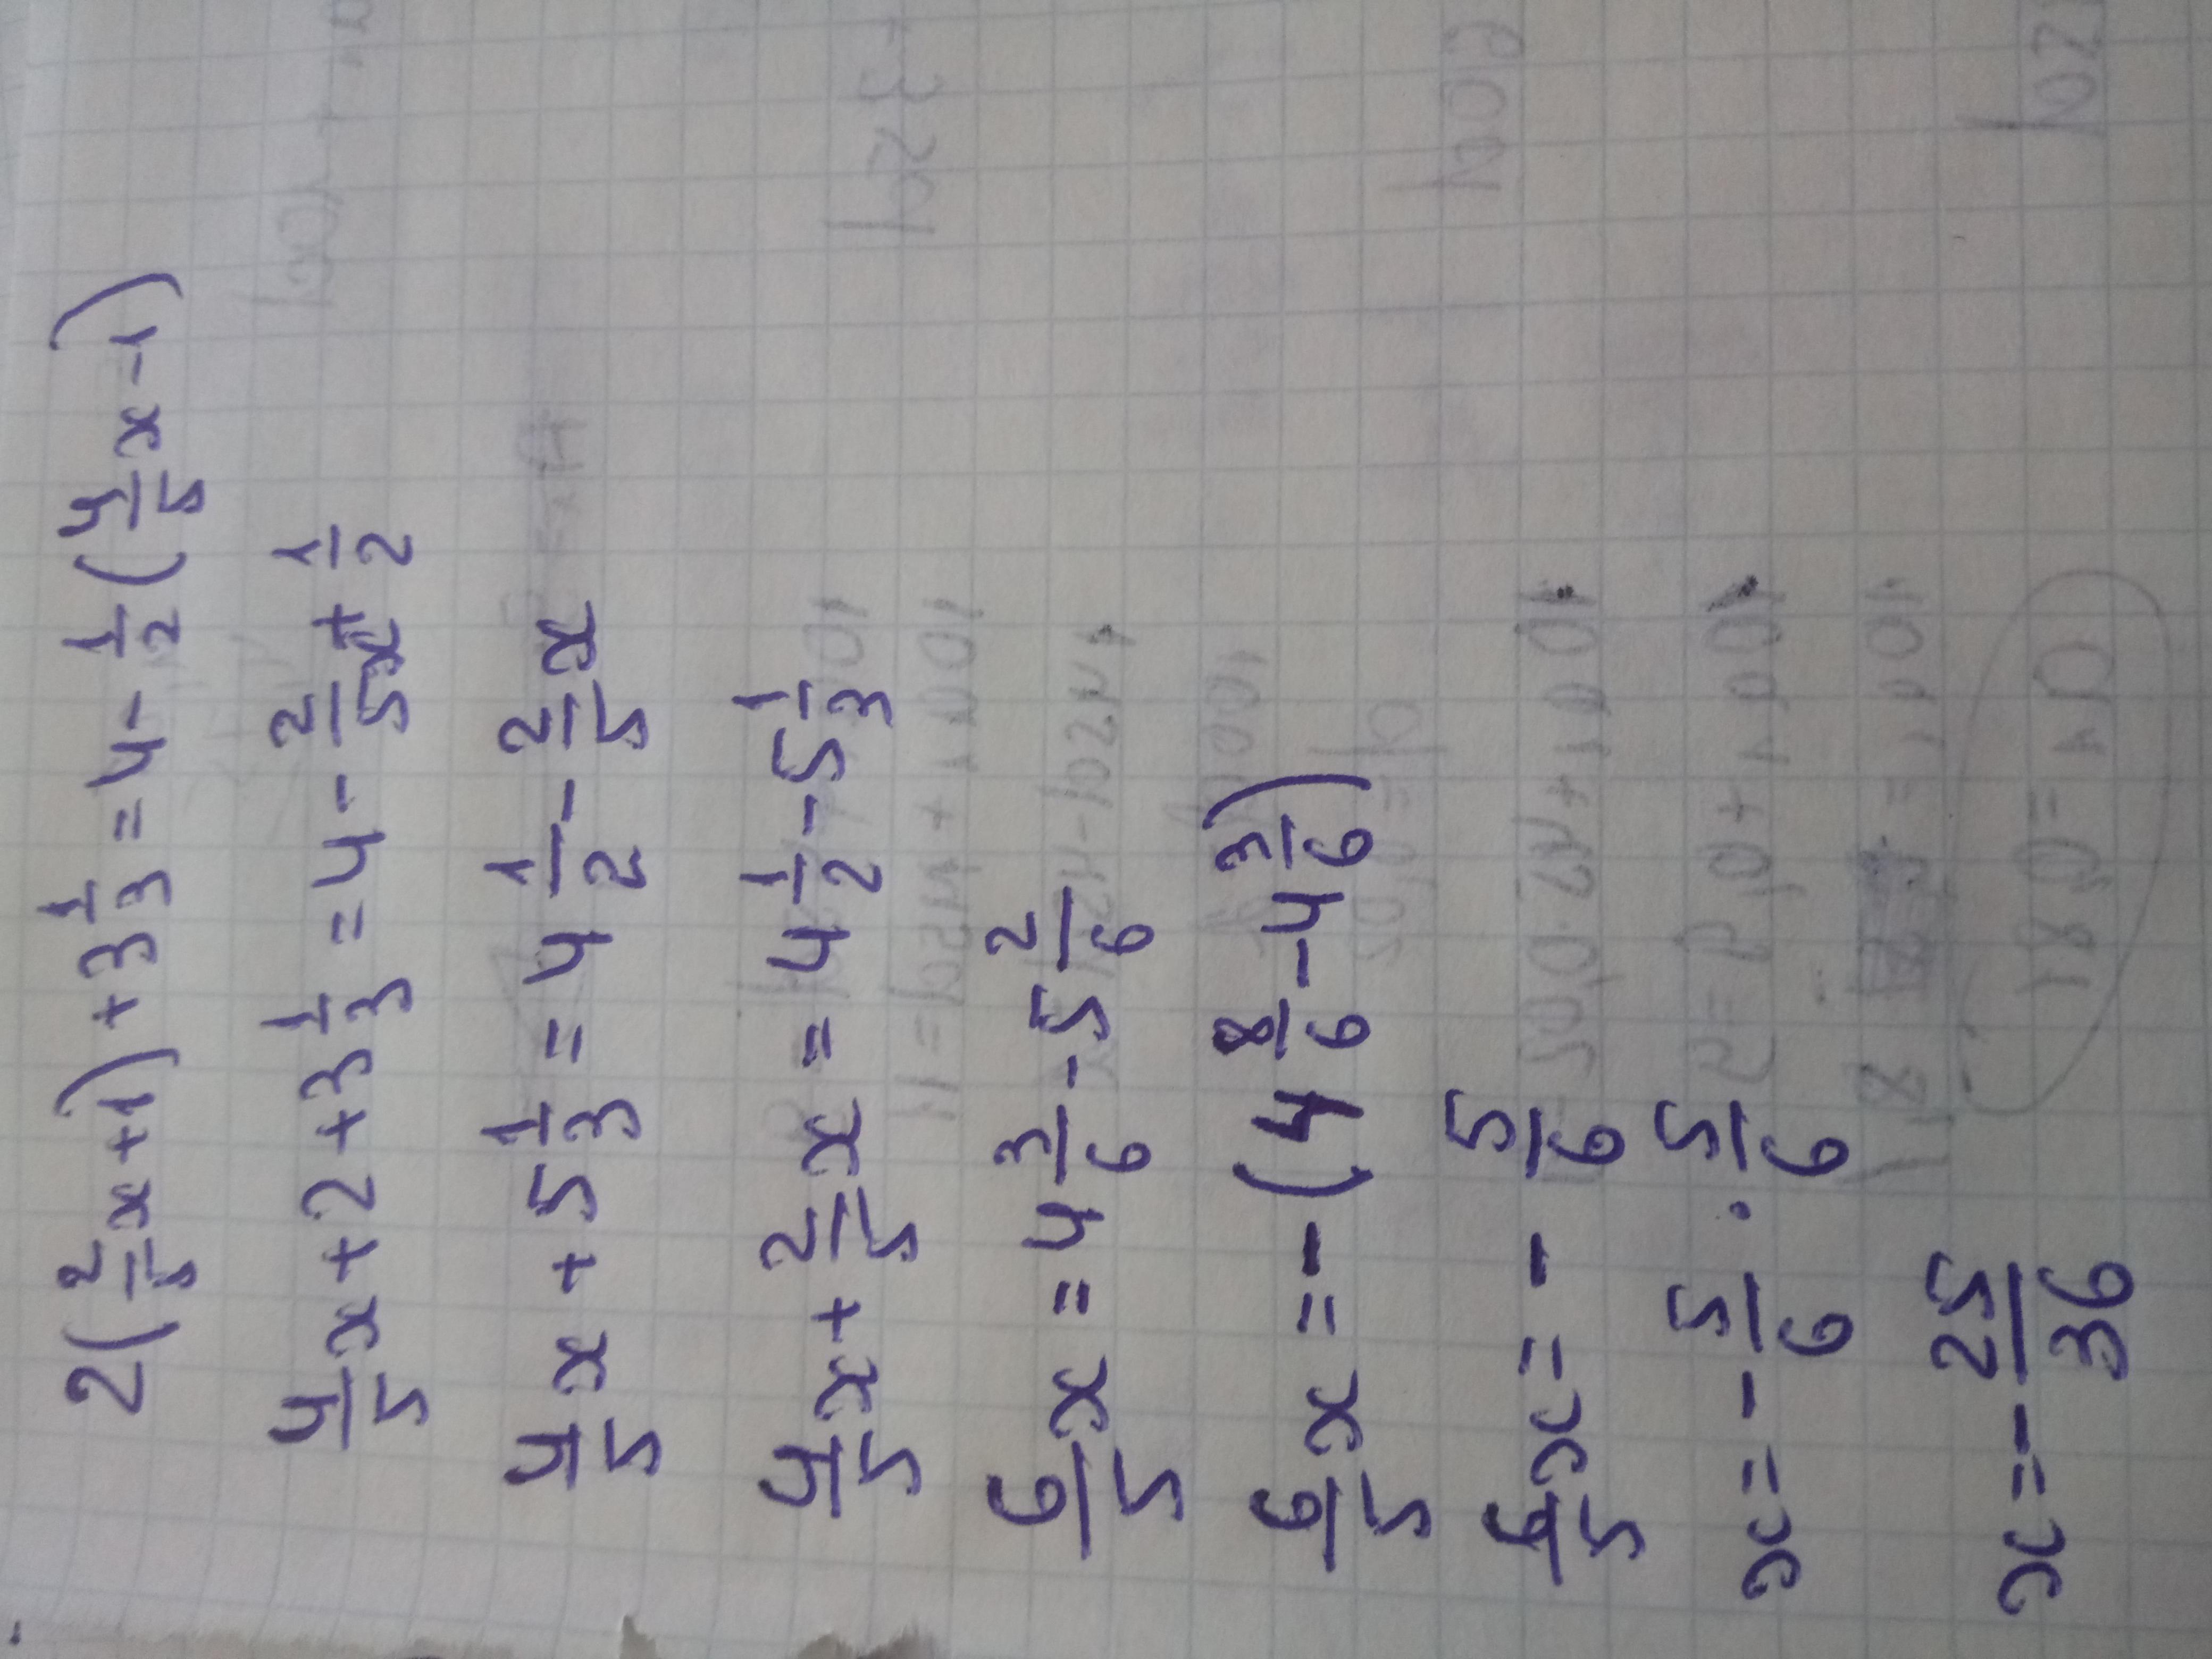 2(2/5x+1)+3 1/3=4-1/2(4/5x-1)
4/5x+2+3 1/3=4-2/5x+1/2
4/5x+5 1/3=4 1/2-2/5x
4/5x+2/5x=4 1/2-5 1/3
6/5x=4 3/6-5 2/6
6/5x=-(4 8/6-4 3/6)
6/5x=-5/6
x=-5/6·5/6
x=-25/36